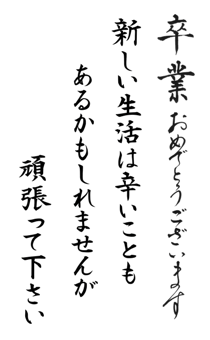 卒業おめでとうございます
新しい生活は辛いことも
あるかもしれませんが
頑張って下さい